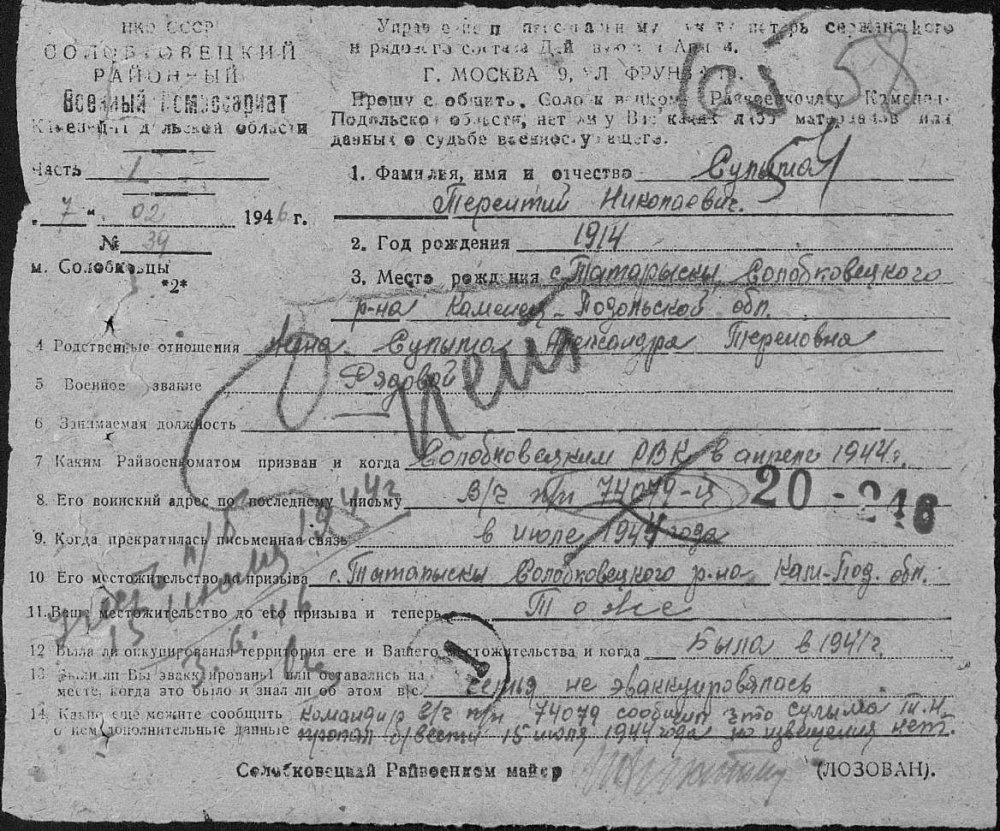 НКО СССР
СОЛОБКОВЕЦКИЙ
РАЙОННЫЙ
Военный Комиссариат
Каменец-Подольской области
Часть 1
"7" 02 1946 г.
№ 39
м. Солобковцы
"2"
Управление по персональному учету потерь сержантского
и рядового состава Армии.
Г. МОСКВА 9, УЛ ФРУНЗЕ
58
Прошу сообщить Солобковецкому Райвоенкомату Каменец-
Подольской области, нет ли у Вас каких либо материалов или
данных о судьбе военнослужащего.
1. Фамилия, имя и отчество Сулыма
Терентий Николаевич.
2. Год рождения 1914
3. Место рождения с. Татарыски, Солобковецкого
р-на Каменец-Подольской обл.
4 Родственные отношения Жена - Сулыма Александра
5 Военное звание Рядовой
6 Занимаемая должность
7 Каким Райвоенкоматом призван и когда Солобковецким РВК в апреле 1944 г.
8. Его воинский адрес по последнему письму В/ч п/п 74079-
20-246
9. Когда прекратилась письменная связь в июле 1944 года
10 Его местожительство до призыва с. Татарыски Солобковецкого р-на Кам-Под. обл.
11. Ваше местожительство до его призыва и теперь То же
12 Была ли оккупирована территория его и Вашего местожительства и когда Была в 1941 г.
13 Были ли Вы эвакуированы или оставались на
месте, когда это было и знал ли об этом в/с. семья не эвакуировалась
14. Какие еще можете сообщить
о нем дополнительные данные
Командир в/ч п/п 74079 сообщил что Сулыма Т.Н.
пропал б/вести 15 июля 1944 года но извещения нет.
Солобковецкий Райвоенком майор (ЛОЗОВАН).
нет
1